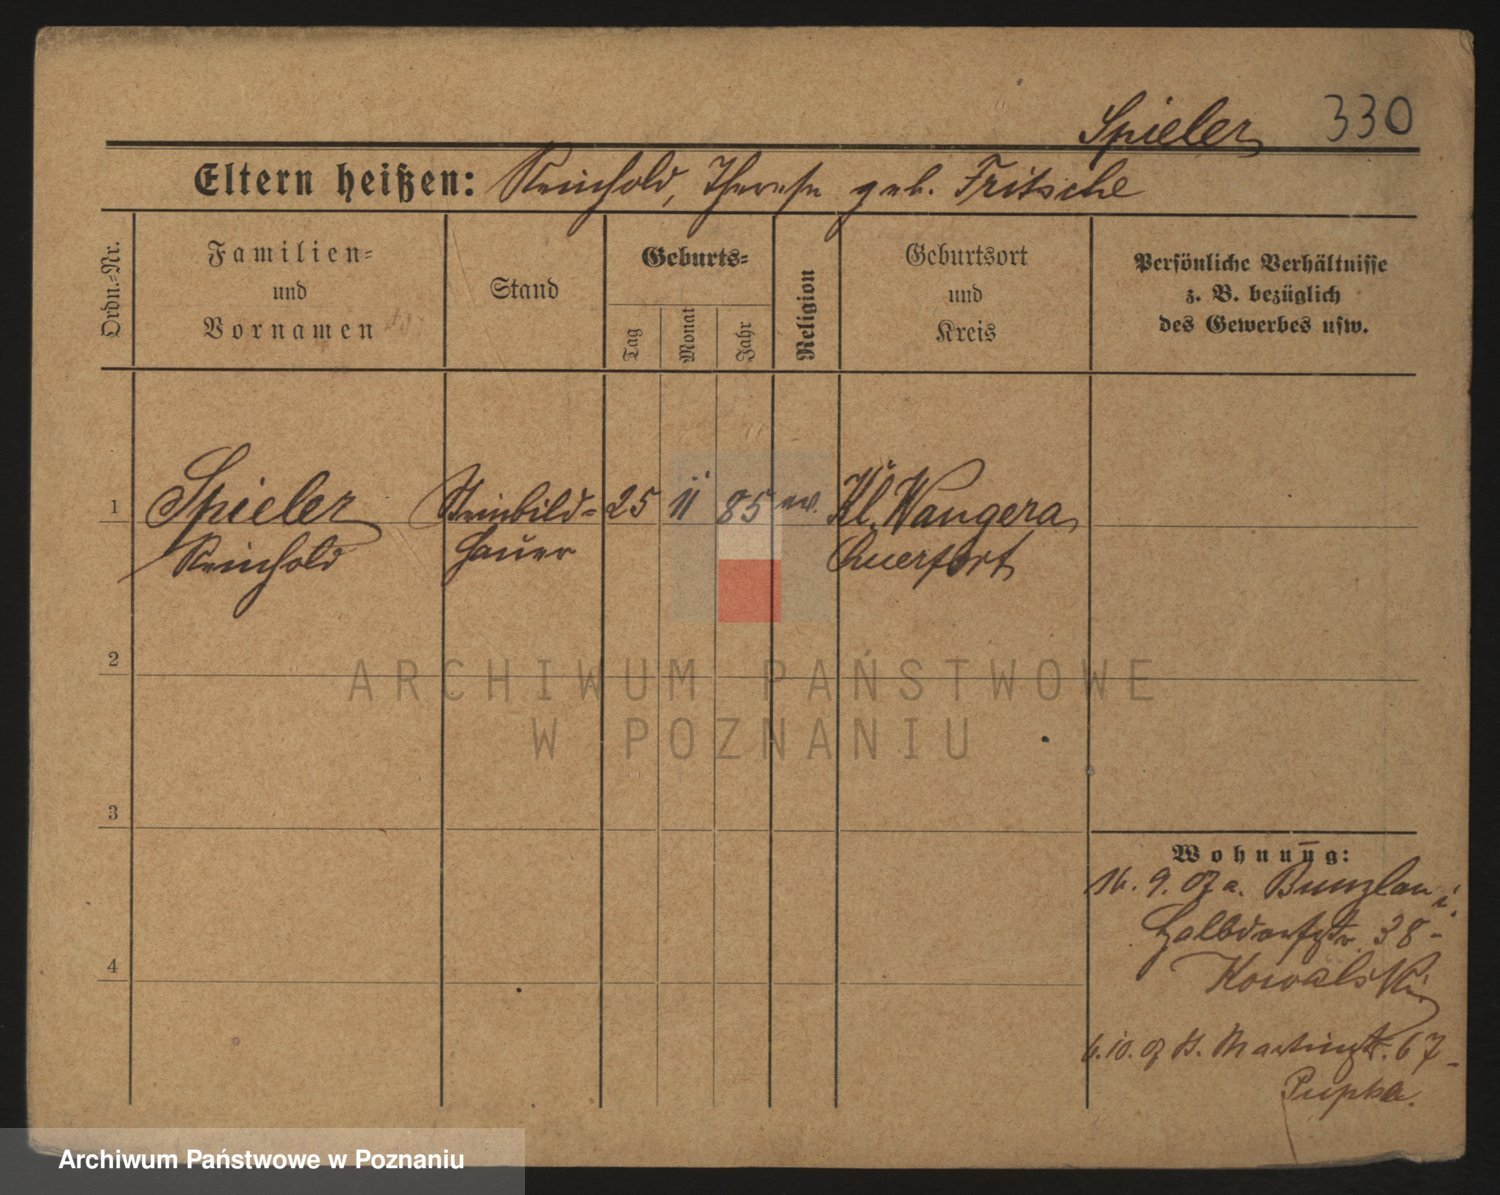 Spieler 330
Eltern heißen: Reinhold, Therese geb. Fritsche
Ordn.-Nr.
Familien=
und
Vornamen
Stand
Geburts=
Tag
Monat
Jahr
Religion
Geburtsort
und
Kreis
Persönliche Verhältnisse
z. B. bezüglich
des Gewerbes usw.
1 Spieler Steinbild= 25 11 85 ev. Kl. Wangen
Reinhold hauer Querfort
2
3
4
Wohnung:
16. 9. 07 a. Bunzlau i.
Halbdorfstr. 38-
Kowalski
6.10.07 St. Martinstr. 67-
Pupka.
ARCHIWUM PAŃSTWOWE
W POZNANIU
Archiwum Państwowe w Poznaniu